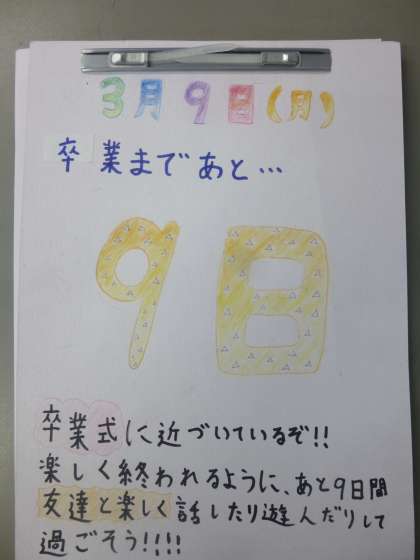 3月9日(月)
卒業まであと…
9日
卒業式に近づいているぞ!!
楽しく終われるように、あと9日間
友達と楽しく話したり遊んだりして
過ごそう!!!!